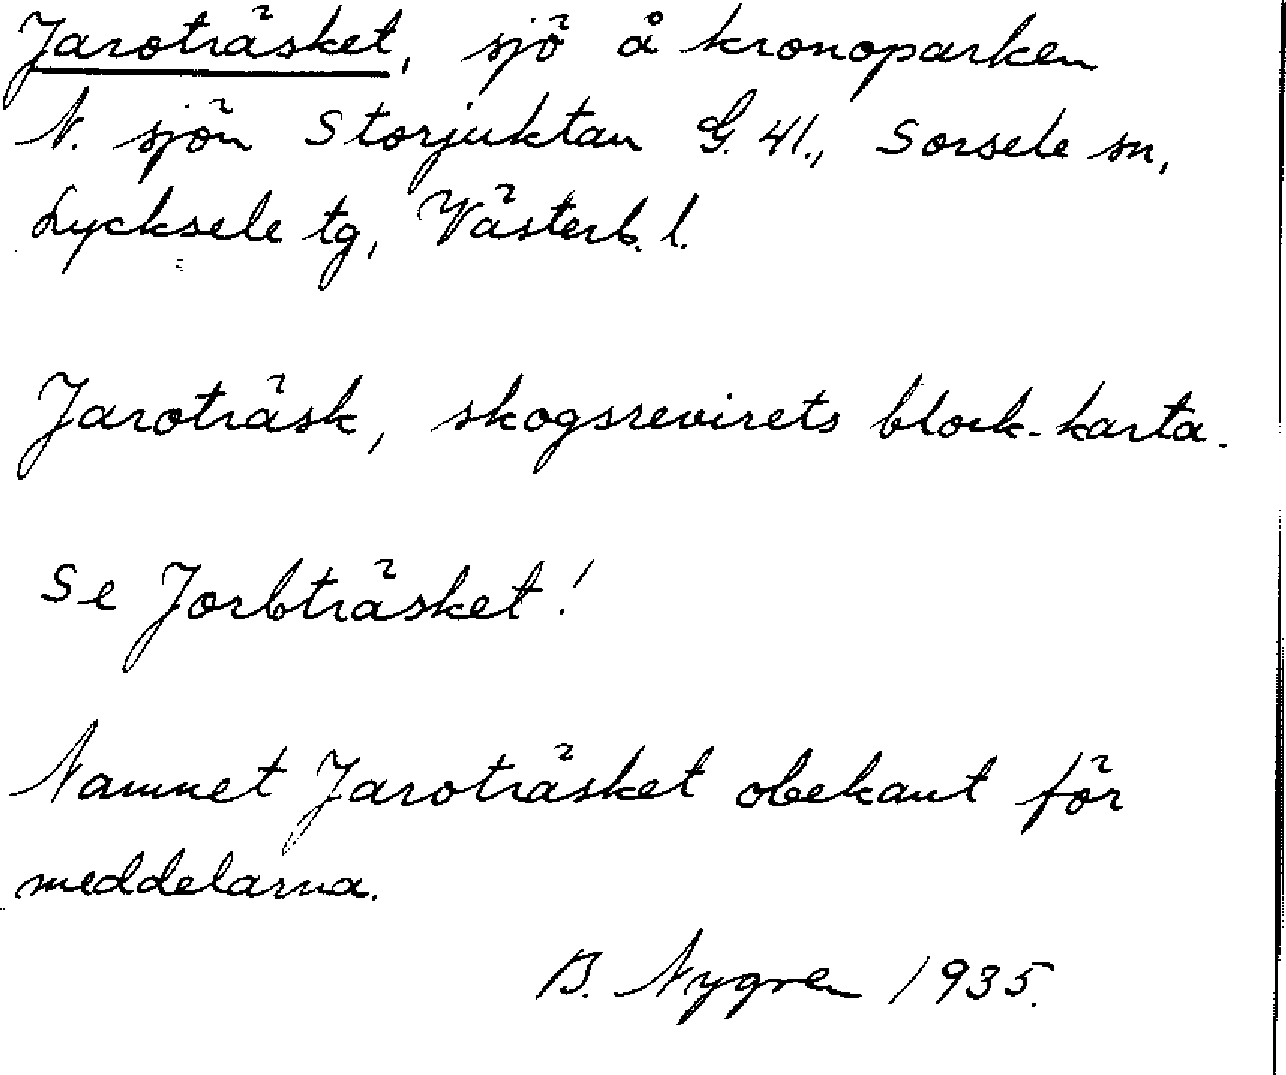 Jaroträsket, sjö å kronoparken
N. sjön Storjuktan G. 41., Sorsele sn,
Lycksele tg, Västerb. l.
Jaroträsk, skogsrevirets block-karta.
Se Jorbträsket!
Namnet Jaroträsket obekant för
meddelarna.
B. Nygren 1935.